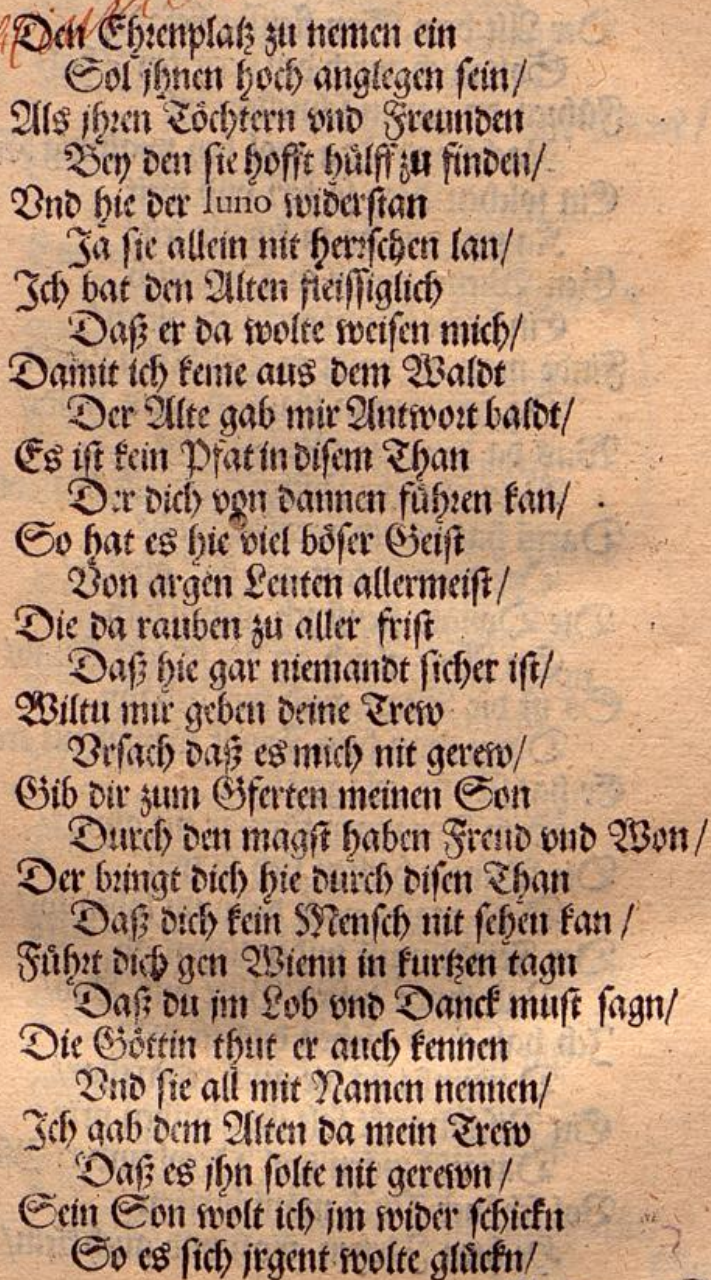 Den Ehrenplatz zu nemen ein
Sol jhnen hoch anglegen sein/
Als jhren Töchtern vnd Freunden
Bey den sie hofft hülff zu finden/
Vnd hie der Iuno widerstan
Ja sie allein nit herrschen lan/
Ich bat den Alten fleissiglich
Daß er da wolte weisen mich/
Damit ich keme aus dem Waldt
Der Alte gab mir Antwort baldt/
Es ist kein Pfat in disem Than
Der dich von dannen führen kan/
So hat es hie viel böser Geist
Von argen Leuten allermeist/
Die da rauben zu aller frist
Daß hie gar niemandt sicher ist/
Wiltu mir geben deine Trew
Vrsach daß es mich nit gerew/
Gib dir zum Gferten meinen Son
Durch den magst haben Freud vnd Won/
Der bringt dich hie durch disen Than
Daß dich kein Mensch nit sehen kan/
Führt dich gen Wienn in kurtzen tagn
Daß du jm Lob vnd Danck must sagn/
Die Göttin thut er auch kennen
Vnd sie all mit Namen nennen/
Ich gab dem Alten da mein Trew
Daß es jhn solte nit gerewn/
Sein Son wolt ich jm wider schickn
So es sich jrgent wolte glückn/